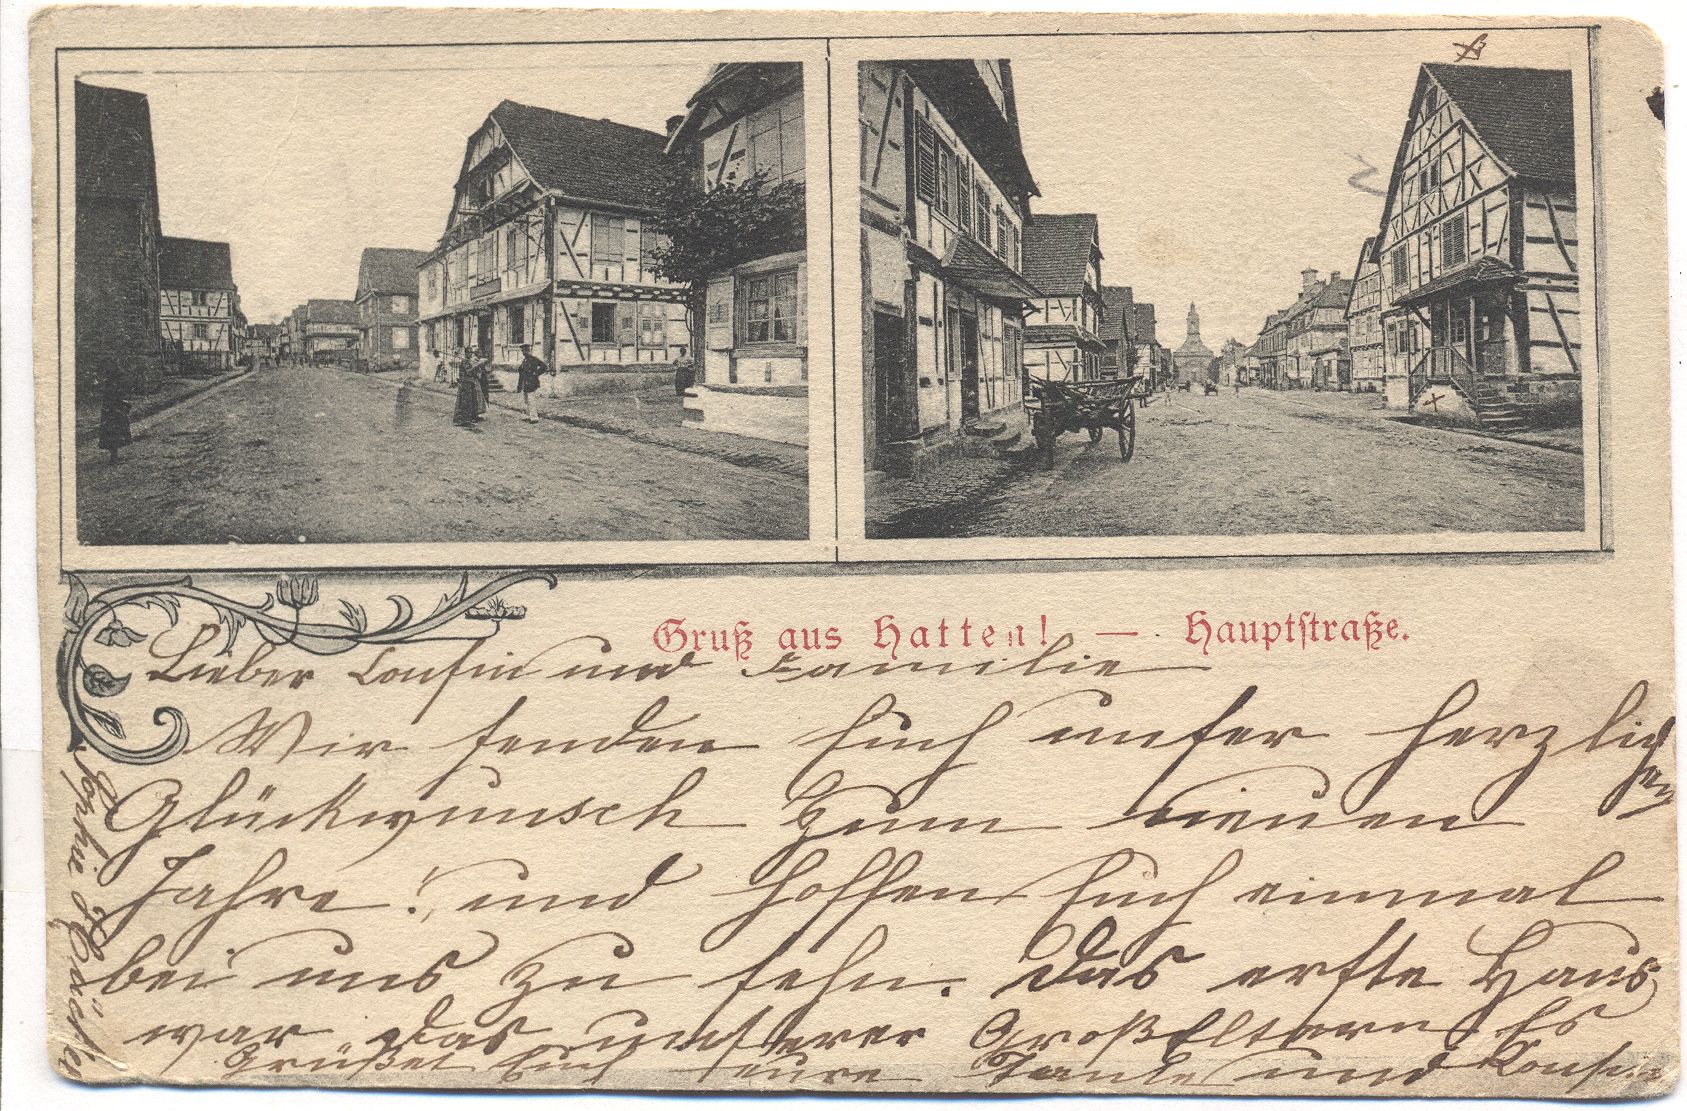 Gruß aus Hatten! — Hauptstraße.
Lieber Cousin und Familie
Wir senden Euch unser herzlichen
Glückwunsch zum neuen
Jahre! und hoffen Euch einmal
bei uns zu sehn. Das erste Haus
war das unserer GroßEltern. Es
Grüßet Euch eure Tante und Kousine
Sophie